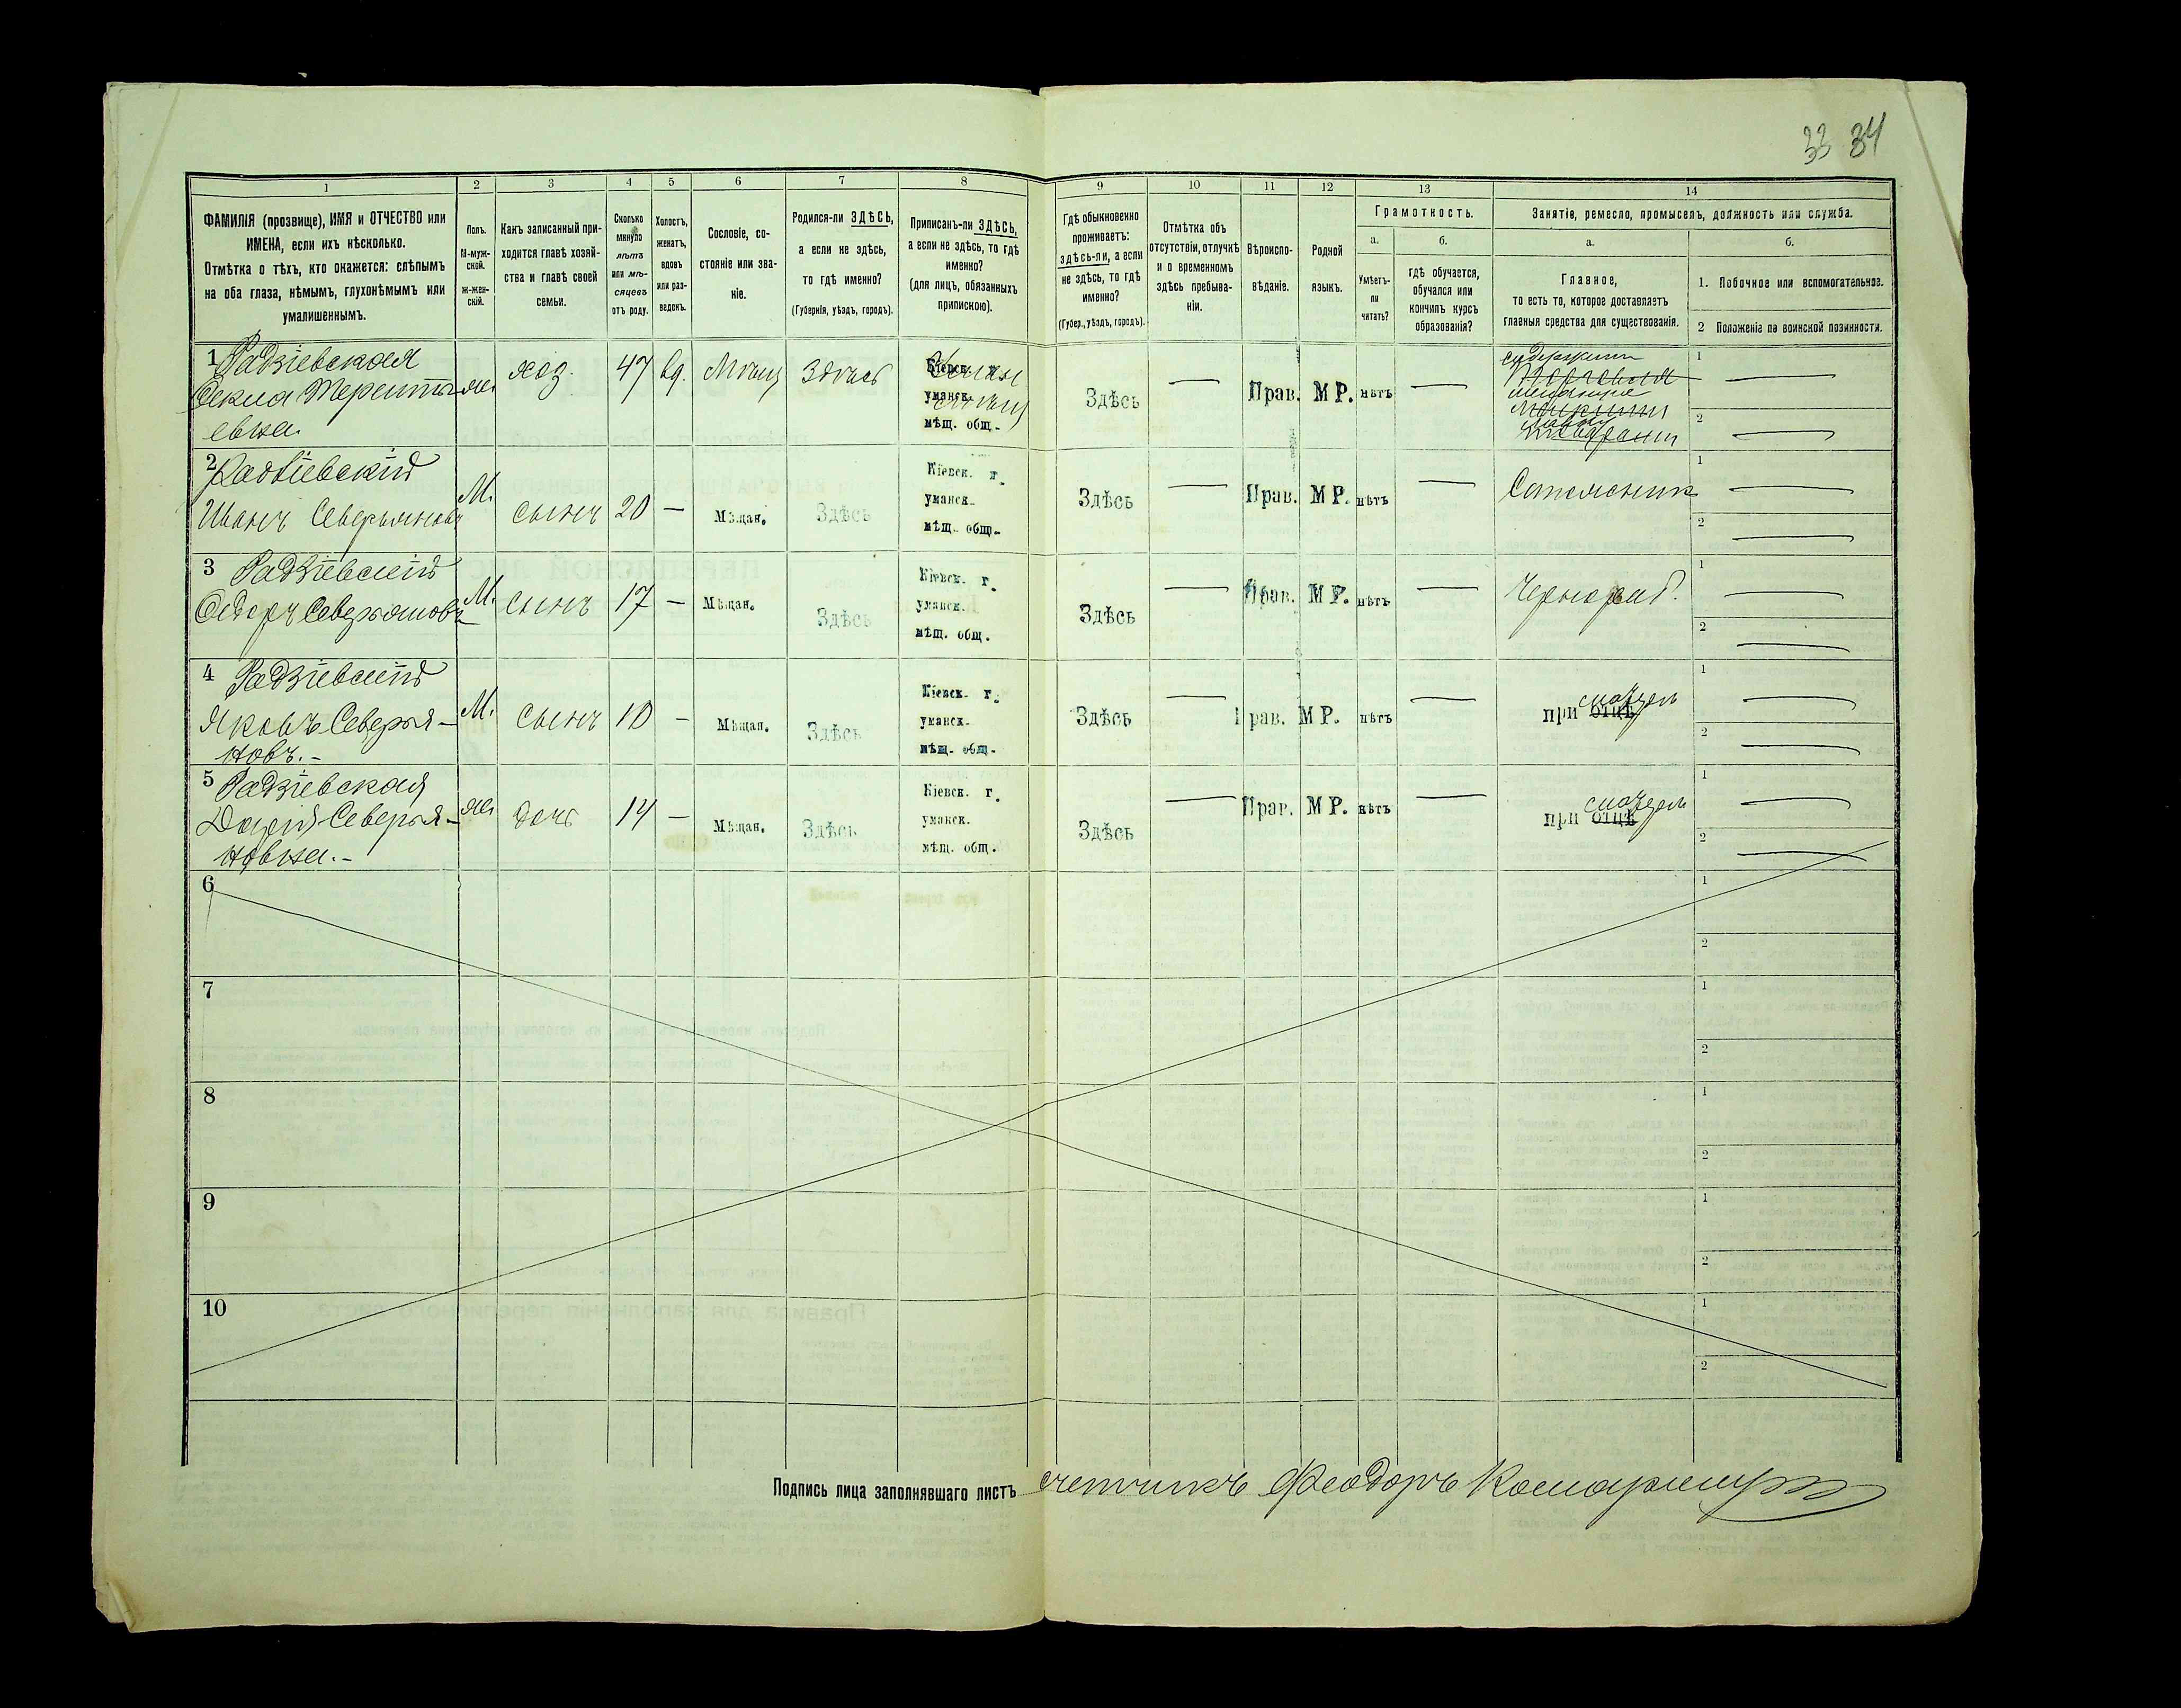 33 34
1 2 3 4 5 6 7 8 9 10 11 12 13 14
ФАМИЛІЯ (прозвище), ИМЯ и ОТЧЕСТВО или
ИМЕНА, если ихъ нѣсколько.
Отмѣтка о тѣхъ, кто окажется: слѣпымъ
на оба глаза, нѣмымъ, глухонѣмымъ или
умалишеннымъ.
Полъ.
М-муж-
ской.
Ж-жен-
скій.
Какъ записанный при-
ходится главѣ хозяй-
ства и главѣ своей
семьи.
Сколько
минуло
лѣтъ
или мѣ-
сяцевъ
отъ роду.
Холостъ,
женатъ,
вдовъ
или раз-
веденъ.
Сословіе, со-
стояніе или зва-
ніе.
Родился-ли ЗДѢСЬ,
а если не здѣсь,
то гдѣ именно?
(Губернія, уѣздъ, городъ).
Приписанъ-ли ЗДѢСЬ,
а если не здѣсь, то гдѣ
именно?
(для лицъ, обязанныхъ
припискою).
Гдѣ обыкновенно
проживаетъ:
здѣсь-ли, а если
не здѣсь, то гдѣ
именно?
(Губер., уѣздъ, городъ).
Отмѣтка объ
отсутствіи, отлучкѣ
и о временномъ
здѣсь пребыва-
ніи.
Вѣроиспо-
вѣданіе.
Родной
языкъ.
Грамотность.
а.
Умѣетъ-
ли
читать?
б.
гдѣ обучается,
обучался или
кончилъ курсъ
образованія?
Занятіе, ремесло, промыселъ, должность или служба.
а.
Главное,
то есть то, которое доставляетъ
главныя средства для существованія.
б.
1. Побочное или вспомогательное.
2 Положеніе по воинской повинности.
1 Радзіевская
Ѳекла Терентьевна
ж. хоз. 47 вд. Мѣщ Здѣсь
Кіевск. г.
уманск.
мѣщ. общ.
Здѣсь — Прав. МР. нѣтъ —
1 —
2 —
2 Радзіевскій
Иванъ Северьяновъ
М. сынъ 20 — Мѣщан. Здѣсь
Кіевск. г.
уманск.
мѣщ. общ.
Здѣсь — Прав. МР. нѣтъ —
1 —
2 —
3 Радзіевскій
Ѳедоръ Северьяновъ
М. сынъ 17 — Мѣщан. Здѣсь
Кіевск. г.
уманск.
мѣщ. общ.
Здѣсь — Прав. МР. нѣтъ —
1 —
2 —
4 Радзіевскій
Яковъ Северья-
новъ.-
М. сынъ 10 — Мѣщан. Здѣсь
Кіевск. г.
уманск.
мѣщ. общ.
Здѣсь — Прав. МР. нѣтъ — при отцѣ
1 —
2 —
5 Радзіевская
Дарія Северья-
новна.-
ж. дочь 14 — Мѣщан. Здѣсь
Кіевск. г.
уманск.
мѣщ. общ.
Здѣсь — Прав. МР. нѣтъ — при отцѣ
1 —
2 —
6 1
2
7 1
2
8 1
2
9 1
2
10 1
2
Подпись лица заполнявшаго листъ счетчикъ Феодоръ